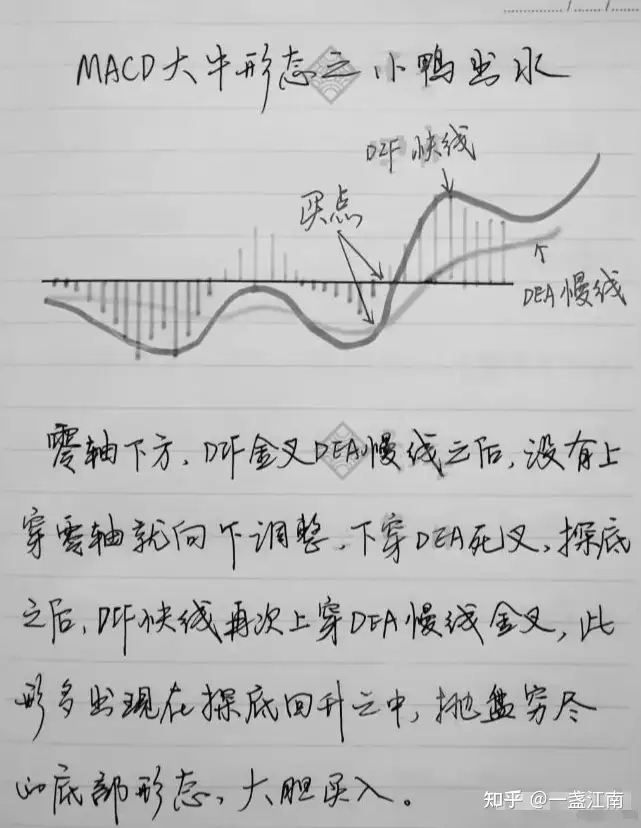 MACD大牛形态之小鸭出水
DIF快线
买点
DEA慢线
零轴下方,DIF金叉DEA慢线之后,没有上
穿零轴就向下调整,下穿DEA死叉,探底
之后,DIF快线再次上穿DEA慢线金叉,此
形多出现在探底回升之中,抛盘穷尽
的底部形态,大胆买入。
知乎 @一盏江南